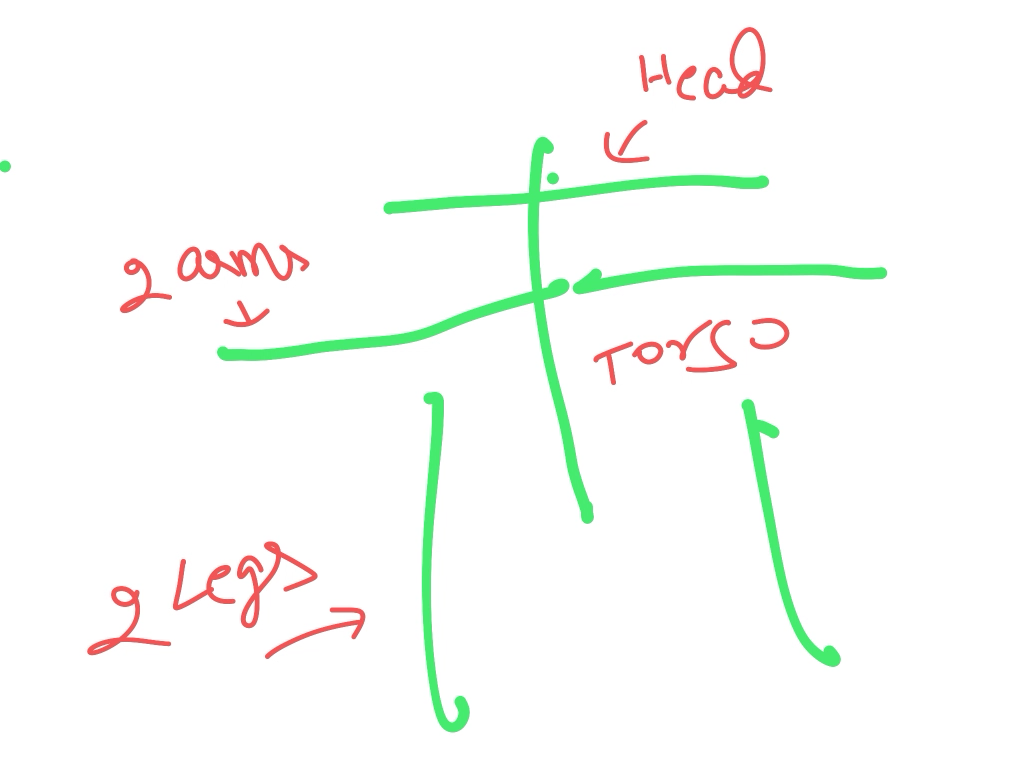 Head
2 arms
Torso
2 Legs